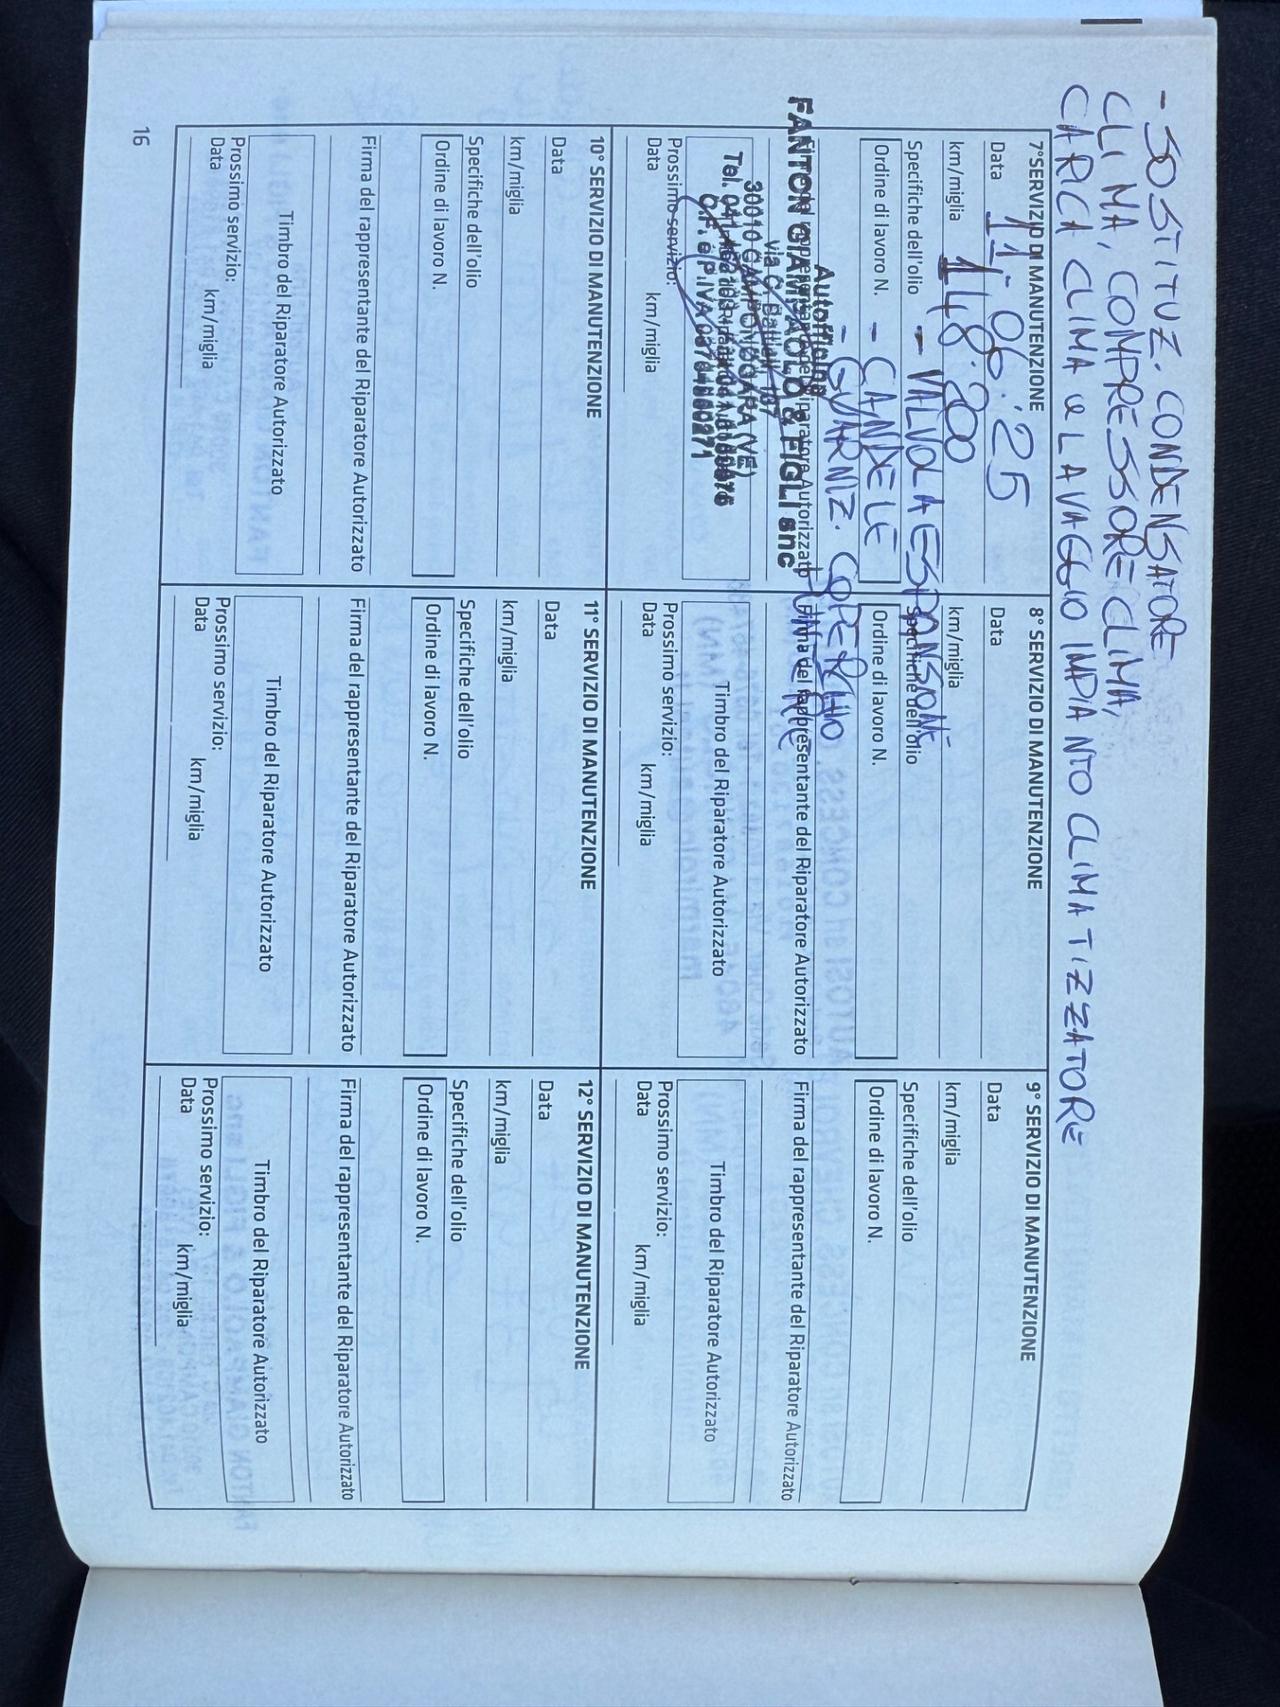 - SOSTITUZ. CONDENSATORE
CLIMA, COMPRESSORE CLIMA,
CARICA CLIMA e LAVAGGIO IMPIANTO CLIMATIZZATORE
7° SERVIZIO DI MANUTENZIONE
Data 11.06.'25
km/miglia 148.200
Specifiche dell'olio - VALVOLA ESPANSIONE
Ordine di lavoro N. - CANDELE
- GUARNIZ. COPERCHIO
PUNTERIE
Autofficina
FANTON GIAMPAOLO & FIGLI snc
30010 CAMPONOGARA (VE)
Prossimo servizio:
Data km/miglia
8° SERVIZIO DI MANUTENZIONE
Data
km/miglia
Specifiche dell'olio
Ordine di lavoro N.
Firma del rappresentante del Riparatore Autorizzato
Timbro del Riparatore Autorizzato
Prossimo servizio:
Data km/miglia
9° SERVIZIO DI MANUTENZIONE
Data
km/miglia
Specifiche dell'olio
Ordine di lavoro N.
Firma del rappresentante del Riparatore Autorizzato
Timbro del Riparatore Autorizzato
Prossimo servizio:
Data km/miglia
10° SERVIZIO DI MANUTENZIONE
Data
km/miglia
Specifiche dell'olio
Ordine di lavoro N.
Firma del rappresentante del Riparatore Autorizzato
Timbro del Riparatore Autorizzato
Prossimo servizio:
Data km/miglia
11° SERVIZIO DI MANUTENZIONE
Data
km/miglia
Specifiche dell'olio
Ordine di lavoro N.
Firma del rappresentante del Riparatore Autorizzato
Timbro del Riparatore Autorizzato
Prossimo servizio:
Data km/miglia
12° SERVIZIO DI MANUTENZIONE
Data
km/miglia
Specifiche dell'olio
Ordine di lavoro N.
Firma del rappresentante del Riparatore Autorizzato
Timbro del Riparatore Autorizzato
Prossimo servizio:
Data km/miglia
16